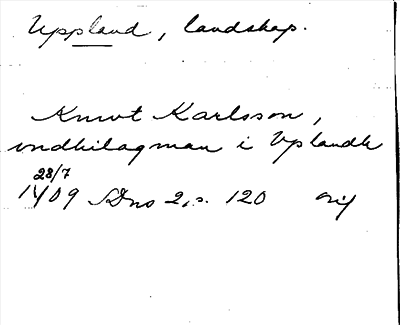 Uppland, landskap.
Knwt Karlsson,
vndhilagman i Vplandh
28/7
1409 SDns 2, s. 120 orig